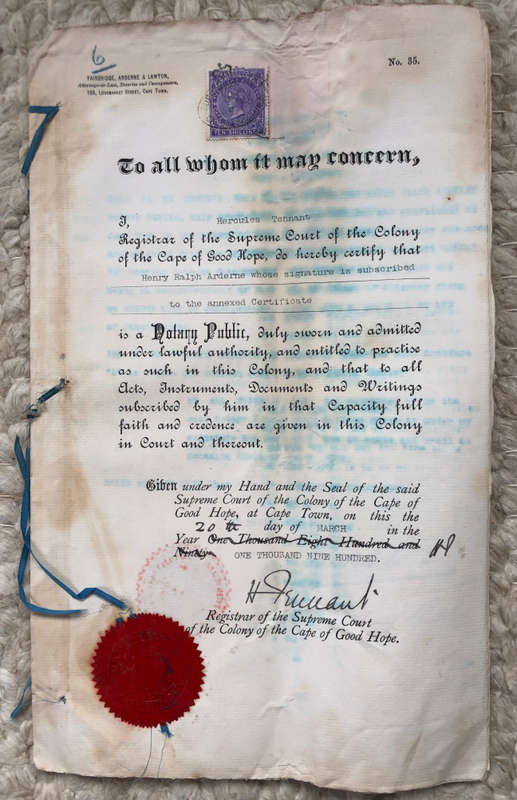 6
FAIRBRIDGE, ARDERNE & LAWTON,
Attorneys-at-Law, Notaries and Conveyancers,
Cape Town.
No. 35.
TEN SHILLINGS
To all whom it may concern,
I, Hercules Tennant
Registrar of the Supreme Court of the Colony
of the Cape of Good Hope, do hereby certify that
Henry Ralph Arderne whose signature is subscribed
to the annexed Certificate
is a Notary Public, duly sworn and admitted
under lawful authority, and entitled to practise
as such in this Colony, and that to all
Acts, Instruments, Documents and Writings
subscribed by him in that Capacity full
faith and credence are given in this Colony
in Court and thereout.
Given under my Hand and the Seal of the said
Supreme Court of the Colony of the Cape of
Good Hope, at Cape Town, on this the
20th day of MARCH in the
Year One Thousand Eight Hundred and
Ninety ONE THOUSAND NINE HUNDRED.
H Tennant
Registrar of the Supreme Court
of the Colony of the Cape of Good Hope.